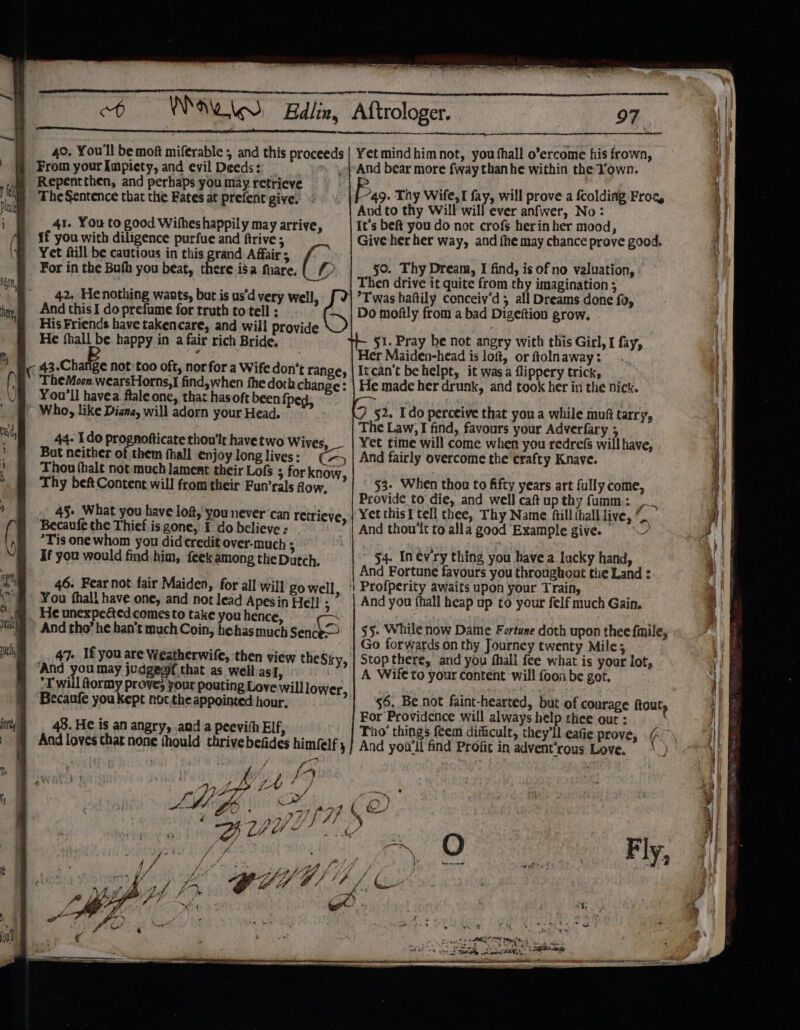 Edlin, Aſtrologer. 97
40. You'll be moſt miſerable ; and this proceeds
From your Impiety, and evil Deeds :
Repent then, and perhaps you may retrieve
The Sentence that the Fates at preſent give.
41. You to good Wiſhes happily may arrive,
If you with diligence purſue and ſtrive ;
Yet ſtill be cautious in this grand Affair ;
For in the Buſh you beat, there is a ſnare.
42. He nothing wants, but is us'd very well,
And this I do preſume for truth to tell :
His Friends have taken care, and will provide
He ſhall be happy in a fair rich Bride.
43. Change not too oft, nor for a Wife don't range,
The Moon wears Horns, I find, when ſhe doth change :
You'll have a ſtale one, that has oft been ſped,
Who, like Diana, will adorn your Head.
44. I do prognoſticate thou'lt have two Wives,
But neither of them ſhall enjoy long lives :
Thou ſhalt not much lament their Loſs ; for know,
Thy beſt Content will from their Fun'rals flow.
45. What you have loſt, you never can retrieve,
Becauſe the Thief is gone, I do believe :
'Tis one whom you did credit over-much ;
If you would find him, ſeek among the Dutch.
46. Fear not fair Maiden, for all will go well,
You ſhall have one, and not lead Apes in Hell ;
He unexpected comes to take you hence,
And tho' he han't much Coin, he has much Sence.
47. If you are Weatherwiſe, then view the Sky,
And you may judge of that as well as I,
'Twill ſtormy prove; your pouting Love will lower,
Becauſe you kept not the appointed hour.
48. He is an angry, and a peeviſh Elf,
And loves that none ſhould thrive beſides himſelf ;
Yet mind him not, you ſhall o'ercome his frown,
And bear more ſway than he within the Town.
49. Thy Wife, I ſay, will prove a ſcolding Froe,
And to thy Will will ever anſwer, No :
It's beſt you do not croſs her in her mood,
Give her her way, and ſhe may chance prove good.
50. Thy Dream, I find, is of no valuation,
Then drive it quite from thy imagination ;
'Twas haſtily conceiv'd ; all Dreams done ſo,
Do moſtly from a bad Digeſtion grow.
51. Pray be not angry with this Girl, I ſay,
Her Maiden-head is loſt, or ſtoln away :
It can't be helpt, it was a ſlippery trick,
He made her drunk, and took her in the nick.
52. I do perceive that you a while muſt tarry,
The Law, I find, favours your Adverſary ;
Yet time will come when you redreſs will have,
And fairly overcome the crafty Knave.
53. When thou to fifty years art fully come,
Provide to die, and well caſt up thy ſumm :
Yet this I tell thee, Thy Name ſtill ſhall live,
And thou'lt to all a good Example give.
54. In ev'ry thing you have a lucky hand,
And Fortune favours you throughout the Land :
Proſperity awaits upon your Train,
And you ſhall heap up to your ſelf much Gain.
55. While now Dame Fortune doth upon thee ſmile,
Go forwards on thy Journey twenty Mile ;
Stop there, and you ſhall ſee what is your lot,
A Wife to your content will ſoon be got.
56. Be not faint-hearted, but of courage ſtout,
For Providence will always help thee out :
Tho' things ſeem difficult, they'll eaſie prove,
And you'll find Profit in advent'rous Love.
O Fly,